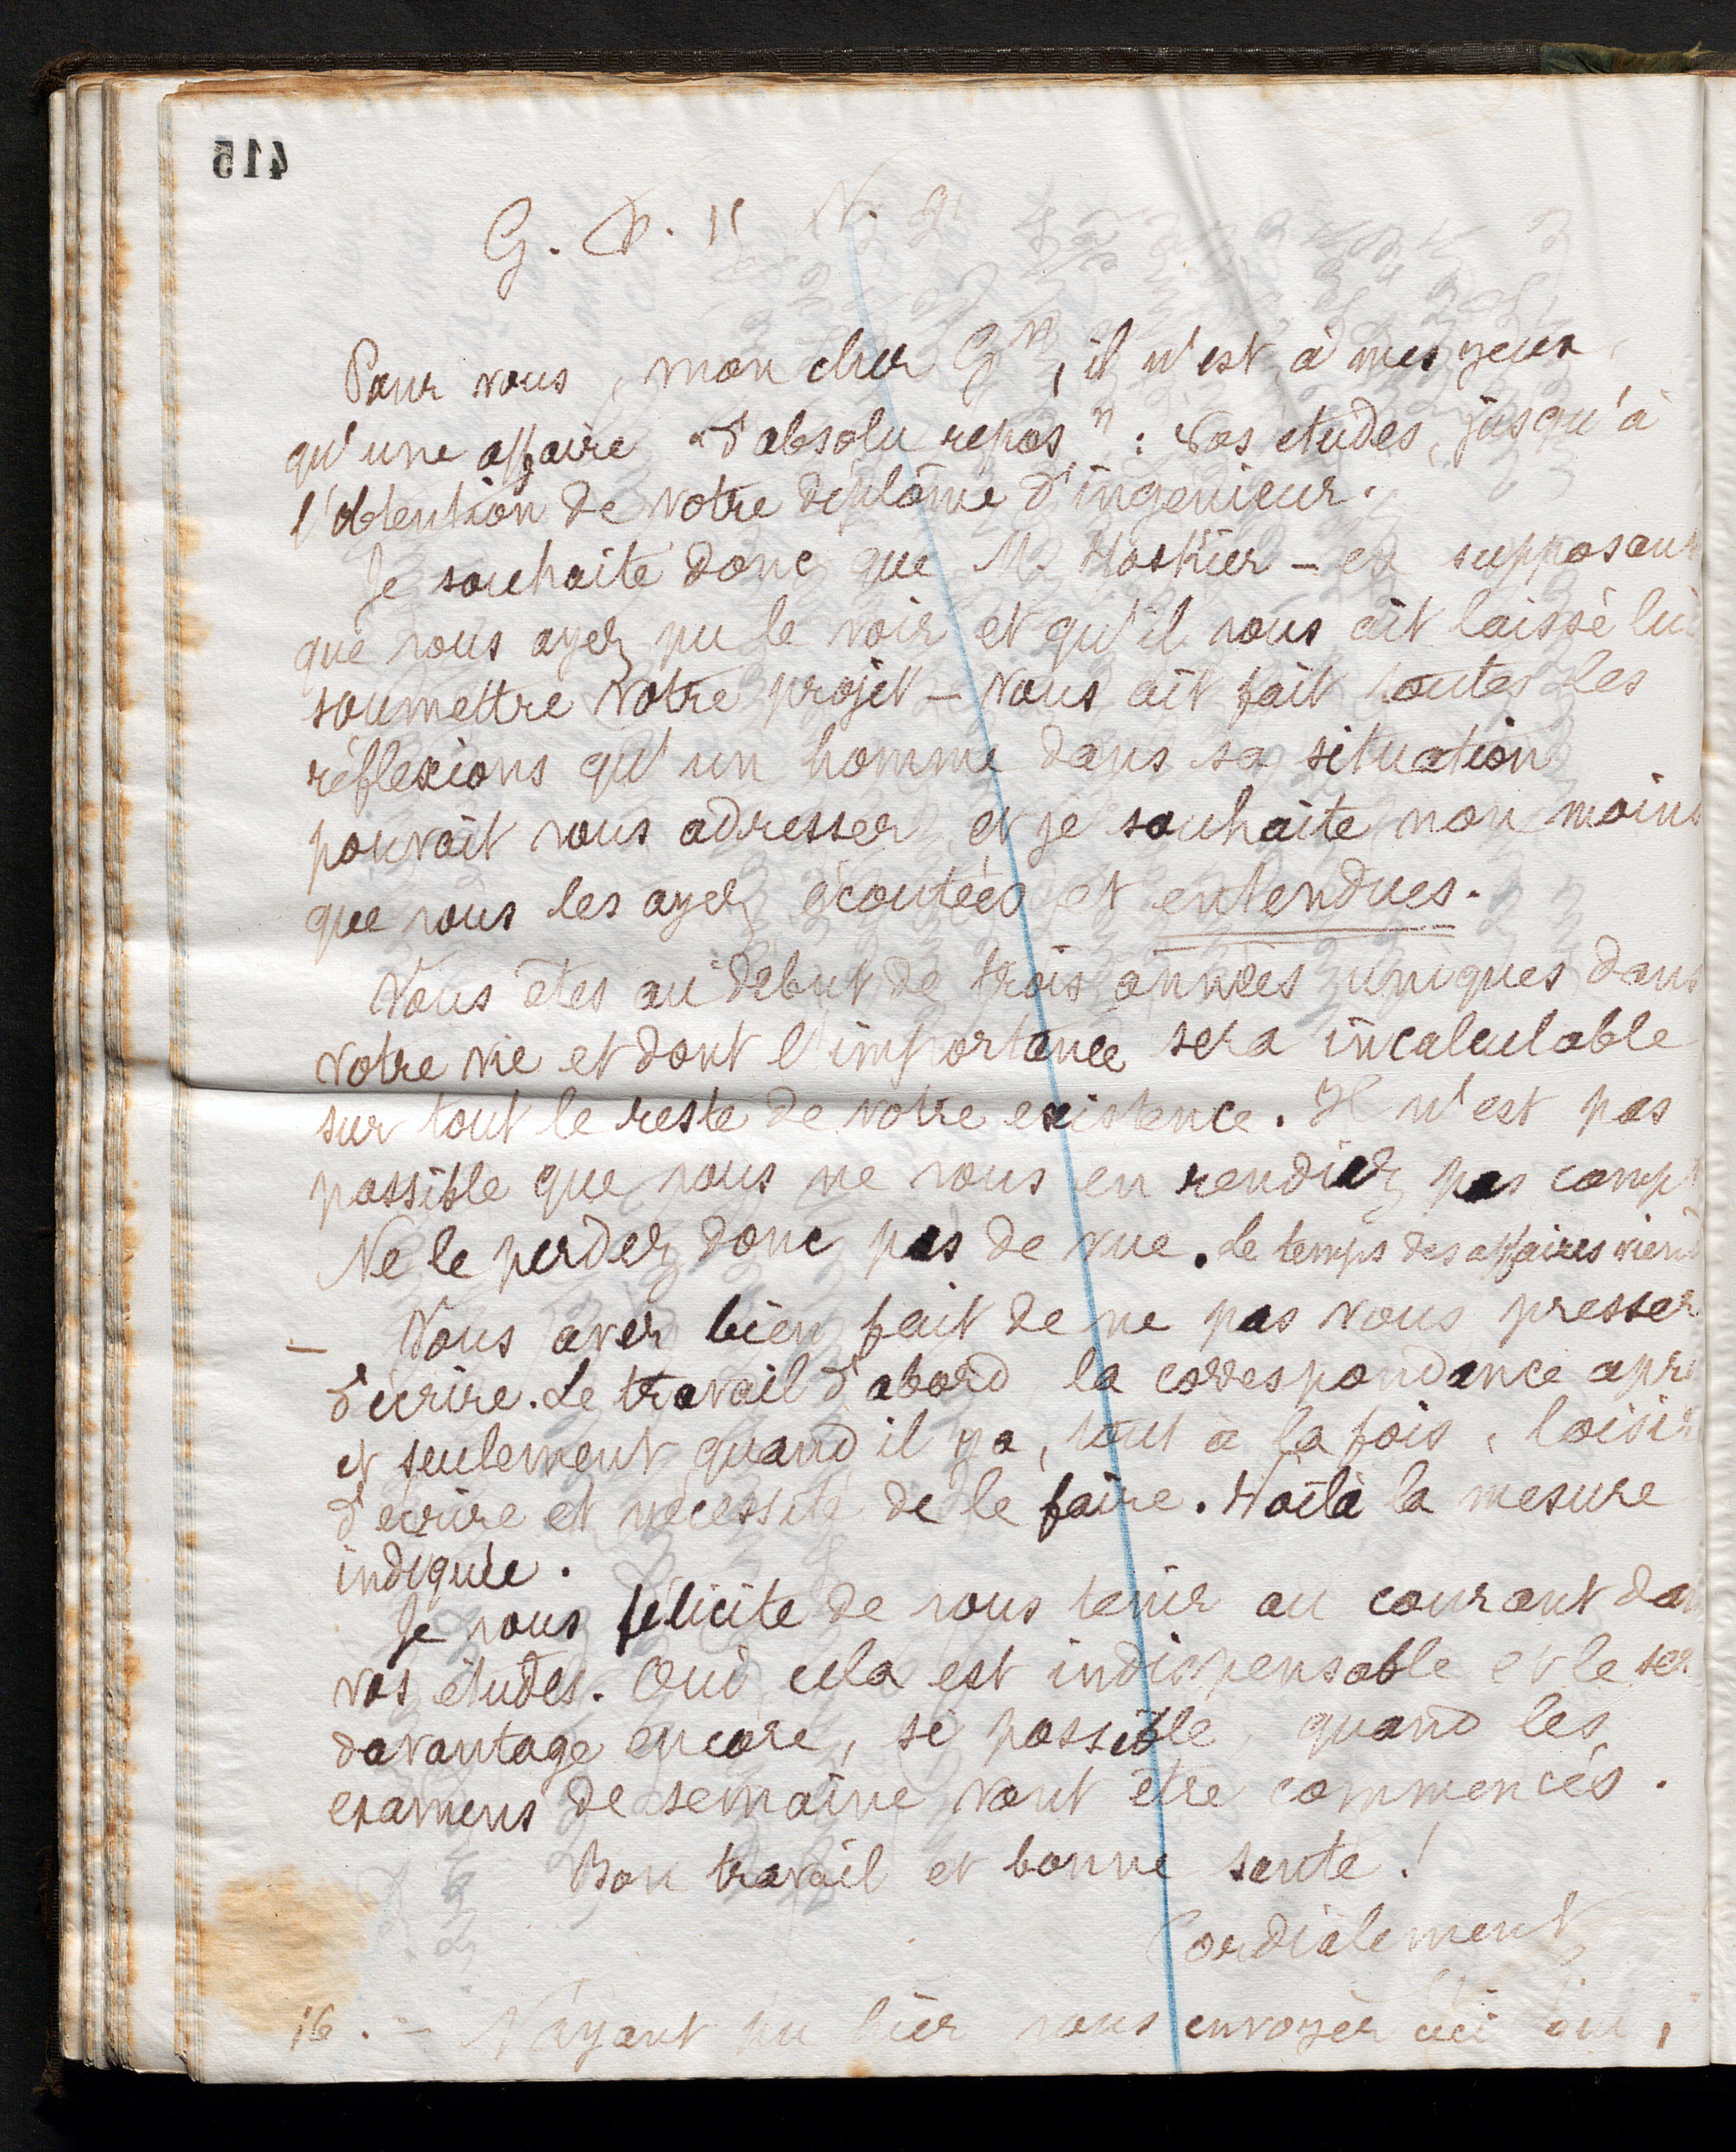 415
G. D. 15 N. 91
Pour vous, mon cher Gn, il n'est à mes yeux
qu'une affaire "d'absolu repos" : vos etudes, jusqu'à
l'obtention de votre diplôme d'ingenieur.
Je souhaite donc que M. Hoskier - en supposant
que vous ayez pu le voir et qu'il vous ait laissé lui
soumettre votre projet - vous ait fait toutes les
réflexions qu'un homme dans sa situation
pouvait vous adresser et je souhaite non moins
que vous les ayez écoutées et entendues.
Vous êtes au début de trois années uniques dans
votre vie et dont l'importance sera incalculable
sur tout le reste de votre existence. Il n'est pas
possible que vous ne vous en rendiez pas compt
Ne le perdez donc pas de vue. Le temps des affaires viend
- Vous avez bien fait de ne pas vous presser
d'écrire. Le travail d'abord la correspondance apr
et seulement quand il y a, tout à la fois, loisir
d'ecrire et nécessité de le faire. Voilà la mesure
indiquée.
Je vous félicite de vous tenir au courant dan
vos études. Oui cela est indispensable et le ser
davantage encore, si possible, quand les
examens de semaine vont être commencés.
Bon travail et bonne sante !
Cordialement
16. - N'ayant pu hier vous envoyer ceci